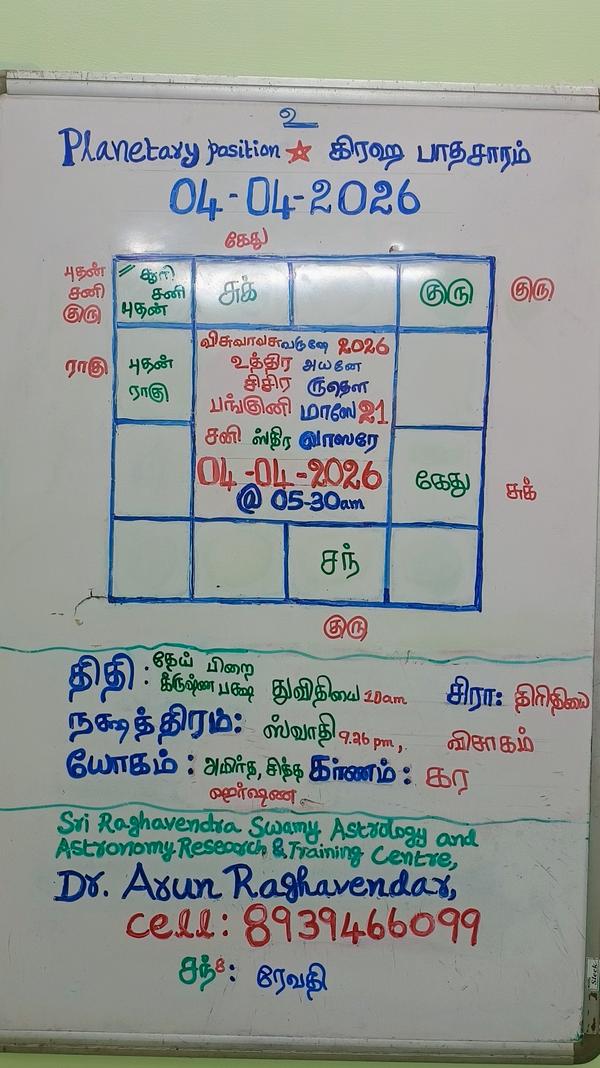 உ
Planetary position ☆ கிரஹ பாதசாரம்
04-04-2026
கேது
புதன்
சனி
குரு
சூரி
சனி
புதன்
சுக்
குரு
குரு
ராகு
புதன்
ராகு
விசுவாவசுவருஷே 2026
உத்திர அயனே
சிசிர ருதௌ
பங்குனி மாஸே 21
சனி ஸ்திர வாஸரே
04-04-2026
@ 05-30am
கேது
சுக்
சந்
குரு
திதி : தேய் பிறை
க்ருஷ்ண பக்ஷ துவிதியை 10am சிரா: திரிதியை
நக்ஷத்திரம்: ஸ்வாதி 9.26 pm, விசாகம்
யோகம் : அமிர்த, சித்த கர்ணம் : கர
ஹர்ஷண
Sri Raghavendra Swamy Astrology and
Astronomy Research & Training Centre,
Dr. Arun Raghavendar,
cell: 8939466099
சந்8: ரேவதி